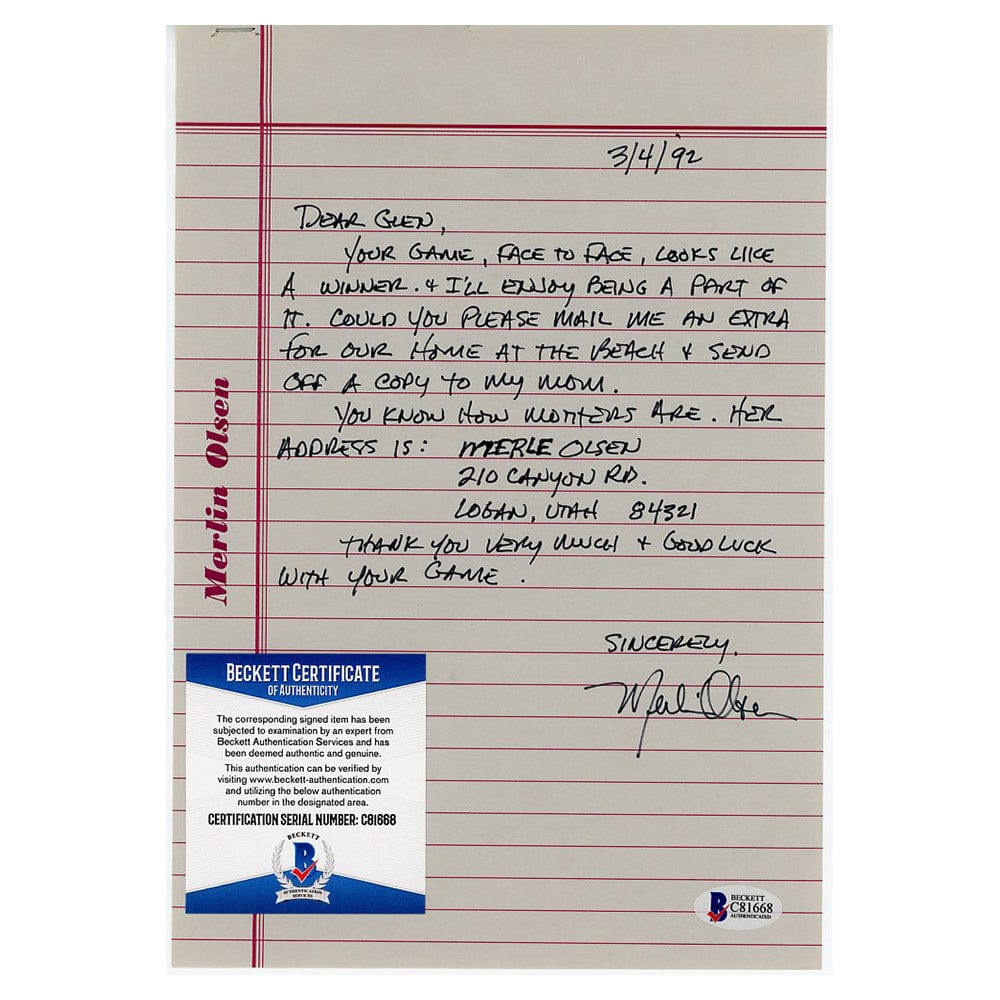 3/4/92
DEAR GLEN,
YOUR GAME, FACE TO FACE, LOOKS LIKE
A WINNER. & I'LL ENJOY BEING A PART OF
IT. COULD YOU PLEASE MAIL ME AN EXTRA
FOR OUR HOME AT THE BEACH & SEND
OFF A COPY TO MY MOM.
YOU KNOW HOW MOTHERS ARE. HER
ADDRESS IS: MERLE OLSEN
210 CANYON RD.
LOGAN, UTAH 84321
THANK YOU VERY MUCH & GOOD LUCK
WITH YOUR GAME.
SINCERELY,
Merlin Olsen
Merlin Olsen
BECKETT CERTIFICATE
OF AUTHENTICITY
The corresponding signed item has been
subjected to examination by an expert from
Beckett Authentication Services and has
been deemed authentic and genuine.
This authentication can be verified by
visiting www.beckett-authentication.com
and utilizing the below authentication
number in the designated area.
CERTIFICATION SERIAL NUMBER: C81668
BECKETT
B
AUTHENTICATION
SERVICES
B
BECKETT
C81668
AUTHENTICATED